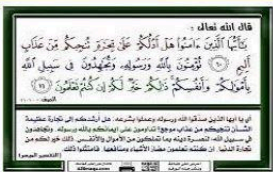 قال الله تعالى :
يَٰٓأَيُّهَا ٱلَّذِينَ ءَامَنُوا۟ هَلْ أَدُلُّكُمْ عَلَىٰ تِجَٰرَةٍۢ تُنجِيكُم مِّنْ عَذَابٍ
أَلِيمٍۢ ١٠ تُؤْمِنُونَ بِٱللَّهِ وَرَسُولِهِۦ وَتُجَٰهِدُونَ فِى سَبِيلِ ٱللَّهِ
بِأَمْوَٰلِكُمْ وَأَنفُسِكُمْ ذَٰلِكُمْ خَيْرٌۭ لَّكُمْ إِن كُنتُمْ تَعْلَمُونَ ١١
أي يا أيها الذين صدقوا الله ورسوله وعملوا بشرعه، هل أرشدكم إلى تجارة عظيمة
الشأن تنجيكم من عذاب موجع؟ تداومون على إيمانكم بالله ورسوله، وتجاهدون
في سبيل الله، لنصرة دينه بما تملكون من الأموال والأنفس، ذلك خير لكم من
تجارة الدنيا، إن كنتم تعلمون مضار الأشياء ومنافعها، فامتثلوا ذلك.
التفسير الميسر